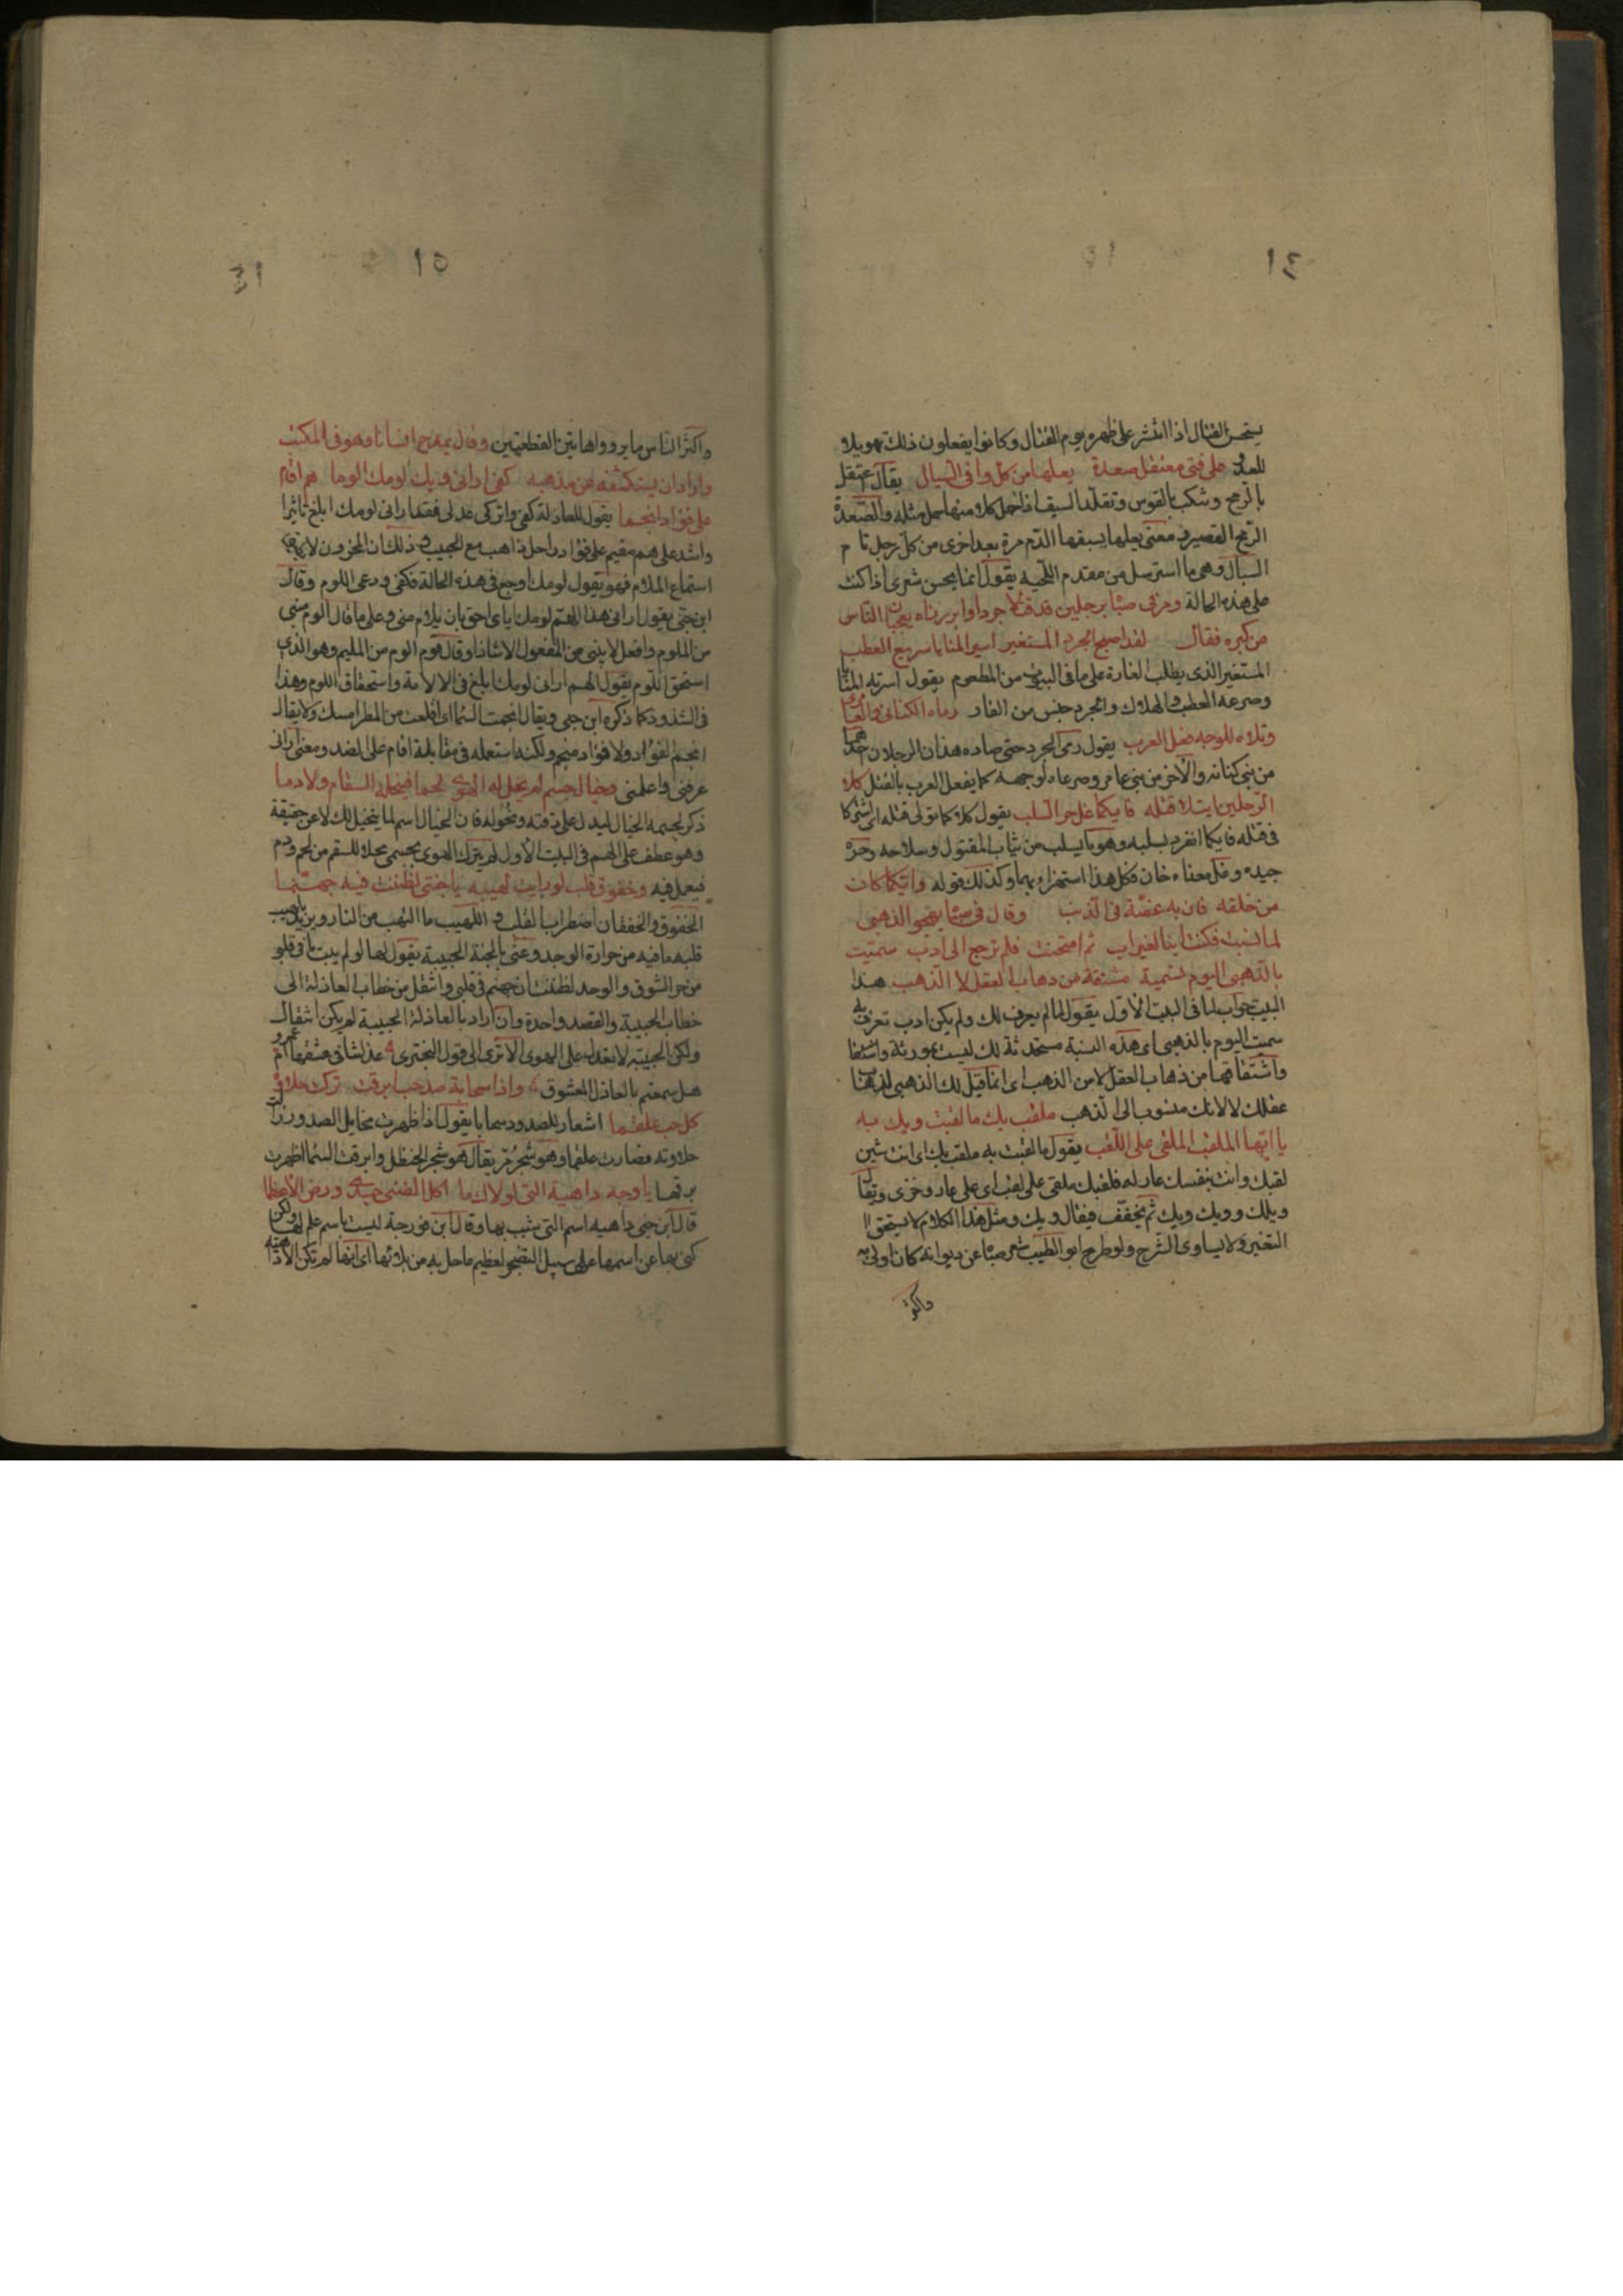 ١٤
يستحسن القتال اذا انتشر على ظهره يوم القتال وكانوا يفعلون ذلك تهويلا
للعدو على فتى معتقل صعدة يعلها من كل وافى السبال يقال اعتقل
بالرمح وتنكب بالقوس وتقلد السيف اذا حمل كلا منها حمل مثله والصعدة
الرمح القصير ومعنى يعلها يسقيها الدم مرة بعد اخرى من كل رجل تام
السبال وهى ما استرسل من مقدم اللحية يقول انما يحسن شعرى اذا كنت
على هذه الحالة ومر فى صباه برجلين قد قتلا جرذا وابرزاه يعجبان الناس
من كبره فقال لقد اصبح الجرذ المستغير اسير المنايا سريع العطب
المستغير الذى يطلب الغارة على ما فى البيوت من المطعوم يقول اسرته المنايا
وصرعه العطب والهلاك والجرذ جنس من الفار رماه الكنانى والعامرى
وتلاه للوجه فعل العرب يقول رمى الجرذ حتى صاده هذان الرجلان احدهما
من بنى كنانه والاخر من بنى عامر وصرعاه لوجهه كما يفعل العرب بالقتل كلا
الرجلين اتلا قتله فايكما غل حر السلب يقول كلا كما تولى قتله اى اشتركا
فى قتله فايكما انفرد بسلبه وهو ما يسلب من ثياب المقتول وسلاحه وحره
جيده وغل معناه خان وكل هذا استهزاء بهما وكذلك قوله وايكما كان
من خلفه فان به عضة فى الذنب وقال فى صباه يهجو الذهبى
لما نسبت فكنت ابنا لغير اب ثم امتحنت فلم ترجع الى ادب سميت
بالذهبى اليوم تسمية مشتقة من ذهاب العقل لا الذهب هذا
البيت جواب لما فى البيت الاول يقول لما لم يعرف لك اب ولم يكن ادب تعرف به
سميت اليوم بالذهبى اى هذه النسبة مستحدثة لك ليست بموروثة
واشتقاقها من ذهاب العقل لا من الذهب اى انما قيل لك الذهبى لذهاب
عقلك لا لانك منسوب الى الذهب ملقب بك ما لقبت ويك به
يا ايها الملقب الملقى على اللقب يقول ما لقبت به ملقب بك اى انت شين
لقبك وانت بنفسك عار له فلقبك ملقى على لقب اى على عار وخزى ويقال
ويلك وويك ويك ثم تخفف فيقال ويك ومثل هذا الكلام لا يستحق
التفسير ولا يساوى الشرح ولو طرح ابو الطيب شعر صباه عن ديوانه كان اولى به
واكثر
١٥
واكثر الناس ما يروواهاتين القطعتين وقال يمدح انسانا وهو فى المكتب
واراد ان يستكشفه عن مذهبه كفى ارانى ويك لومك الوما هم اقام
على فؤاد انجما يقول للعاذلة كفى واتركى عذلى فقد ارانى لومك ابلغ تاثيرا
واشد على هم مقيم على فؤاد راحل ذاهب مع الحبيب وذلك ان المحزون لا يطيق
استماع الملام فهو يقول لومك اوجع فى هذه الحالة فكفى ودعى اللوم وقال
ابن جنى يقول ارانى هذا الهم لومك اياى احق بان يلام منى وعلى ما قال الوم مبنى
من الملوم وافعل لا يبنى من المفعول الا شاذا وقال قوم الوم من المليم وهو الذى
استحق اللوم يقول الهم ارانى لومك ابلغ فى الالامة واستحقاق اللوم وهذا
فى الشذوذ كما ذكره ابن جنى ويقال انجمت السماء اى اقلعت من المطر امسك ولا يقال
انجم الفؤاد ولا فؤاد منجم ولكنه استعمله فى مقابلة اقام على الضد ومعنى ارانى
عرفنى واعلمنى وخيال جسم لم يخل له الهوى لحما فينحله السقام ولا دما
ذكر لجسمه الخيال ليدل على دقته ونحوله فان الخيال اسم لما يتخيل لك لا عن حقيقة
وهو عطف على الهم فى البيت الاول لم يترك الهوى بجسمى محلا للسقم من لحم ودم
فيعمل فيه وخفوق قلب لو رايت لهيبه يا جنتى لظننت فيه جهنما
الخفوق والخفقان اضطراب القلب واللهيب ما التهب من النار ويريد بلهيب
قلبه ما فيه من حرارة الوجد وعنى بالجنة الحبيبة يقول لها لو رايت ما فى قلبى
من حر الشوق والوجد لظننت ان جهنم فى قلبى وانتقل من خطاب العاذلة الى
خطاب الحبيبة والقصد واحدة وان اراد بالعاذلة الحبيبة لم يكن انتقال
ولكن الحبيبة لا تعذل على الهوى الا ترى الى قول البحترى عذلتنا فى عشقها ام عمرو
هل سمعتم بالعاذل المعشوق واذا سحابة صد حب ابرقت تركت حلاوة
كل حب علقما اشعار للصدود سحابا يقول اذا ظهرت مخايل الصدود زالت
حلاوته فصارت علقما وهو شجر مر يقال هو شجر الحنظل وابرقت السماء اظهرت
برقها يا وجه داهية التى لولاك ما اكل الضنى جسدى ورض الاعظما
قال ابن جنى داهيه اسم التى شبب بها وقال ابن فورجة ليست باسم علم لها ولكن
كنى بها عن اسمها على سبيل التضجر لعظيم ما حل به من بلائها اى انها لم تكن الا داهية